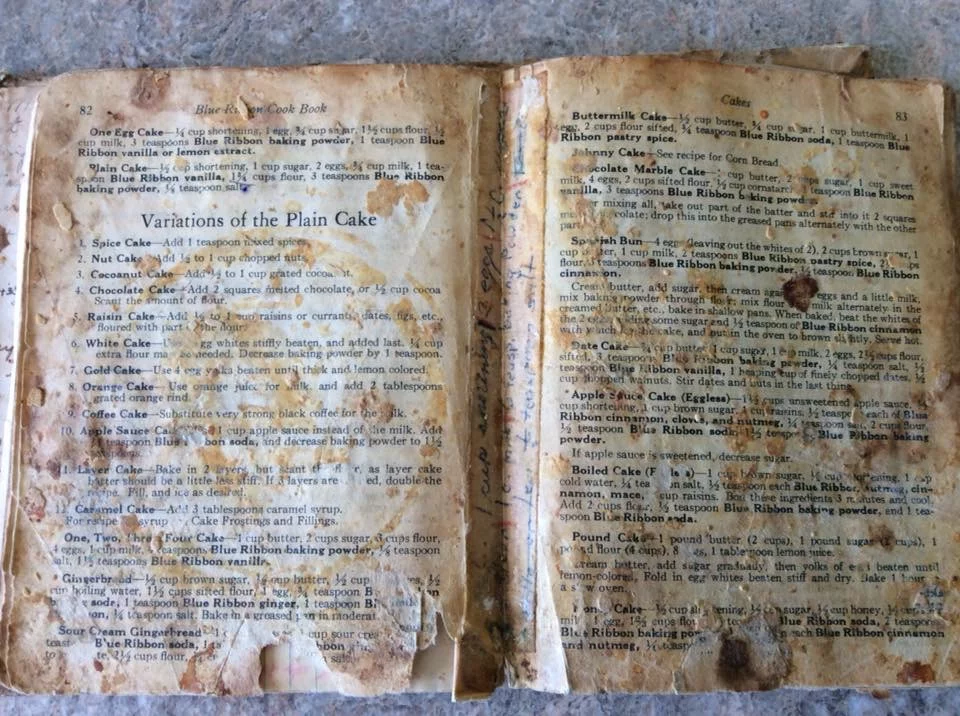 82
Blue Ribbon Cook Book
One Egg Cake—¼ cup shortening, 1 egg, ¾ cup sugar, 1½ cups flour, ½
cup milk, 3 teaspoons Blue Ribbon baking powder, 1 teaspoon Blue
Ribbon vanilla or lemon extract.
Plain Cake—½ cup shortening, 1 cup sugar, 2 eggs, ¾ cup milk, 1 tea-
spoon Blue Ribbon vanilla, 1¾ cups flour, 3 teaspoons Blue Ribbon
baking powder, ¼ teaspoon salt.
Variations of the Plain Cake
1. Spice Cake—Add 1 teaspoon mixed spices.
2. Nut Cake—Add ½ to 1 cup chopped nuts.
3. Cocoanut Cake—Add ½ to 1 cup grated cocoanut.
4. Chocolate Cake—Add 2 squares melted chocolate, or ½ cup cocoa
Scant the amount of flour.
5. Raisin Cake—Add ½ to 1 cup raisins or currants, dates, figs, etc.,
floured with part of the flour.
6. White Cake—Use egg whites stiffly beaten, and added last. ¼ cup
extra flour may be needed. Decrease baking powder by 1 teaspoon.
7. Gold Cake—Use 4 egg yolks beaten until thick and lemon colored.
8. Orange Cake—Use orange juice for milk, and add 2 tablespoons
grated orange rind.
9. Coffee Cake—Substitute very strong black coffee for the milk.
10. Apple Sauce Cake 1 cup apple sauce instead of the milk. Add
teaspoon Blue Ribbon soda, and decrease baking powder to 1½
teaspoons.
11. Layer Cake—Bake in 2 layers, but scant the flour, as layer cake
batter should be a little less stiff. If 3 layers are ed, double the
recipe. Fill, and ice as desired.
12. Caramel Cake—Add 3 tablespoons caramel syrup.
For recipe syrup Cake Frostings and Fillings.
One, Two, Three, Four Cake—1 cup butter, 2 cups sugar, 3 cups flour,
4 eggs, 1 cup milk, 4 teaspoons Blue Ribbon baking powder, ¼ teaspoon
salt, 1½ teaspoons Blue Ribbon vanilla.
Gingerbread—½ cup brown sugar, ½ cup butter, ½ cup
cup boiling water, 1½ cups sifted flour, 1 egg, ¾ teaspoon
soda, 1 teaspoon Blue Ribbon ginger, 1 teaspoon Blue
¼ teaspoon salt. Bake in a greased pan in moderate
Sour Cream Gingerbread cup sour cream
Blue Ribbon soda, 2½ cups flour, salt.
1 cup shortening 2 eggs
Cakes
83
Buttermilk Cake—½ cup butter, ¾ cup sugar, 1 cup buttermilk, 1
egg, 2 cups flour sifted, ¾ teaspoon Blue Ribbon soda, 1 teaspoon Blue
Ribbon pastry spice.
Johnny Cake—See recipe for Corn Bread.
Chocolate Marble Cake— cup butter, 2 cups sugar, 1 cup sweet
milk, 4 eggs, 2 cups sifted flour, ½ cup cornstarch, teaspoon Blue Ribbon
vanilla, 3 teaspoons Blue Ribbon baking powder.
After mixing all, take out part of the batter and stir into it 2 squares
melted chocolate; drop this into the greased pans alternately with the other
part.
Spanish Bun—4 eggs (leaving out the whites of 2), 2 cups brown sugar, 1
cup butter, 1 cup milk, 2 teaspoons Blue Ribbon pastry spice, 2 cups
flour, 3 teaspoons Blue Ribbon baking powder, ½ teaspoon Blue Ribbon
cinnamon.
Cream butter, add sugar, then cream again, eggs and a little milk,
mix baking powder through flour; mix flour milk alternately in the
creamed butter, etc., bake in shallow pans. When baked, beat the whites of
the 2 eggs, adding some sugar and ½ teaspoon of Blue Ribbon cinnamon
with which ice the cake, and put in the oven to brown slightly. Serve hot.
Date Cake—¾ cup butter, 1 cup sugar, 1 cup milk, 2 eggs, 2½ cups flour,
sifted, 3 teaspoons Blue Ribbon baking powder, ¼ teaspoon salt, ½
teaspoon Blue Ribbon vanilla, 1 heaping cup of finely chopped dates, ½
cup chopped walnuts. Stir dates and nuts in the last thing.
Apple Sauce Cake (Eggless)—1½ cups unsweetened apple sauce, ½
cup shortening, 1 cup brown sugar, 1 cup raisins, ½ teaspoon each of Blue
Ribbon cinnamon, cloves, and nutmeg, ¼ teaspoon salt, 2 cups flour,
½ teaspoon Blue Ribbon soda, 1½ teaspoons Blue Ribbon baking
powder.
If apple sauce is sweetened, decrease sugar.
Boiled Cake (Eggless)—1 cup brown sugar, ½ cup shortening, 1 cup
cold water, ¼ teaspoon salt, ½ teaspoon each Blue Ribbon, nutmeg, cin-
namon, mace, cup raisins. Boil these ingredients 3 minutes and cool.
Add 2 cups flour, ½ teaspoon Blue Ribbon baking powder, and 1 tea-
spoon Blue Ribbon soda.
Pound Cake—1 pound butter (2 cups), 1 pound sugar (2 cups), 1
pound flour (4 cups), 8 eggs, 1 tablespoon lemon juice.
Cream butter, add sugar gradually, then yolks of eggs beaten until
lemon-colored. Fold in egg whites beaten stiff and dry. Bake 1 hour
a slow oven.
Honey Cake—½ cup shortening, ½ cup sugar, ½ cup honey, ½ cup
milk, 1 egg, 1¾ cups flour, Blue Ribbon soda, 2 teaspoons
Blue Ribbon baking powder, each Blue Ribbon cinnamon
and nutmeg, ¼ teaspoon